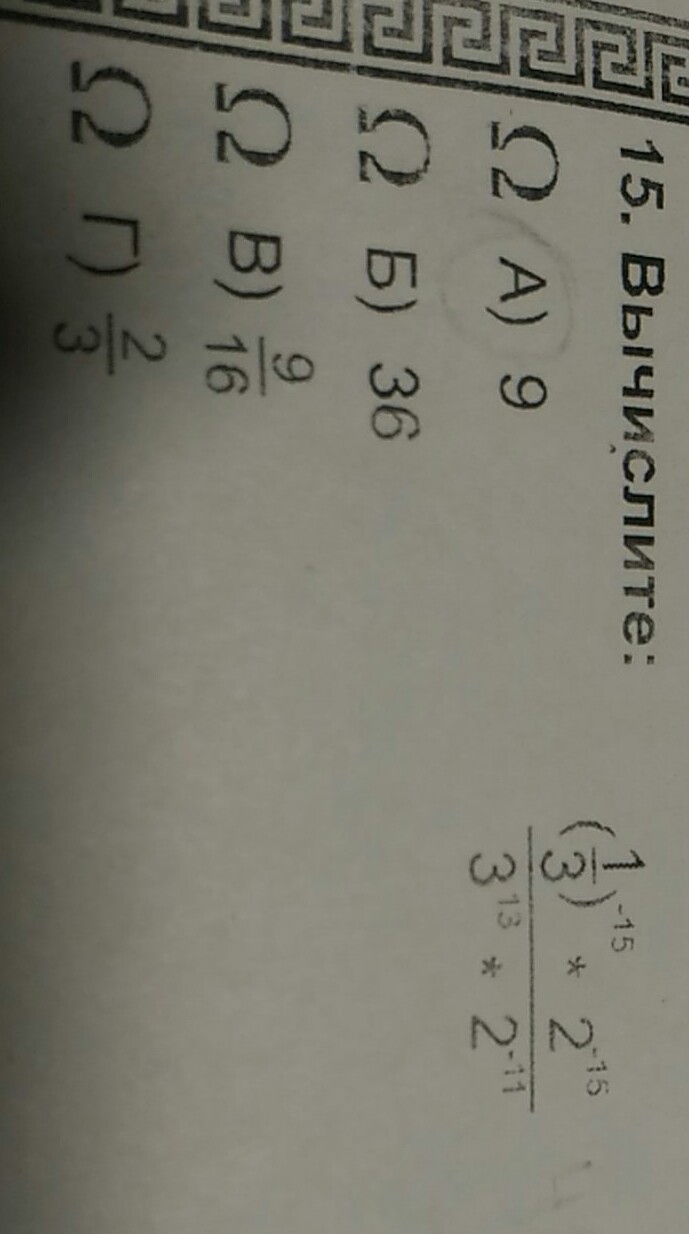 15. Вычислите:
(1/3)^-15 * 2^-15
3^13 * 2^-11
Ω А) 9
Ω Б) 36
Ω В) 9/16
Ω Г) 2/3